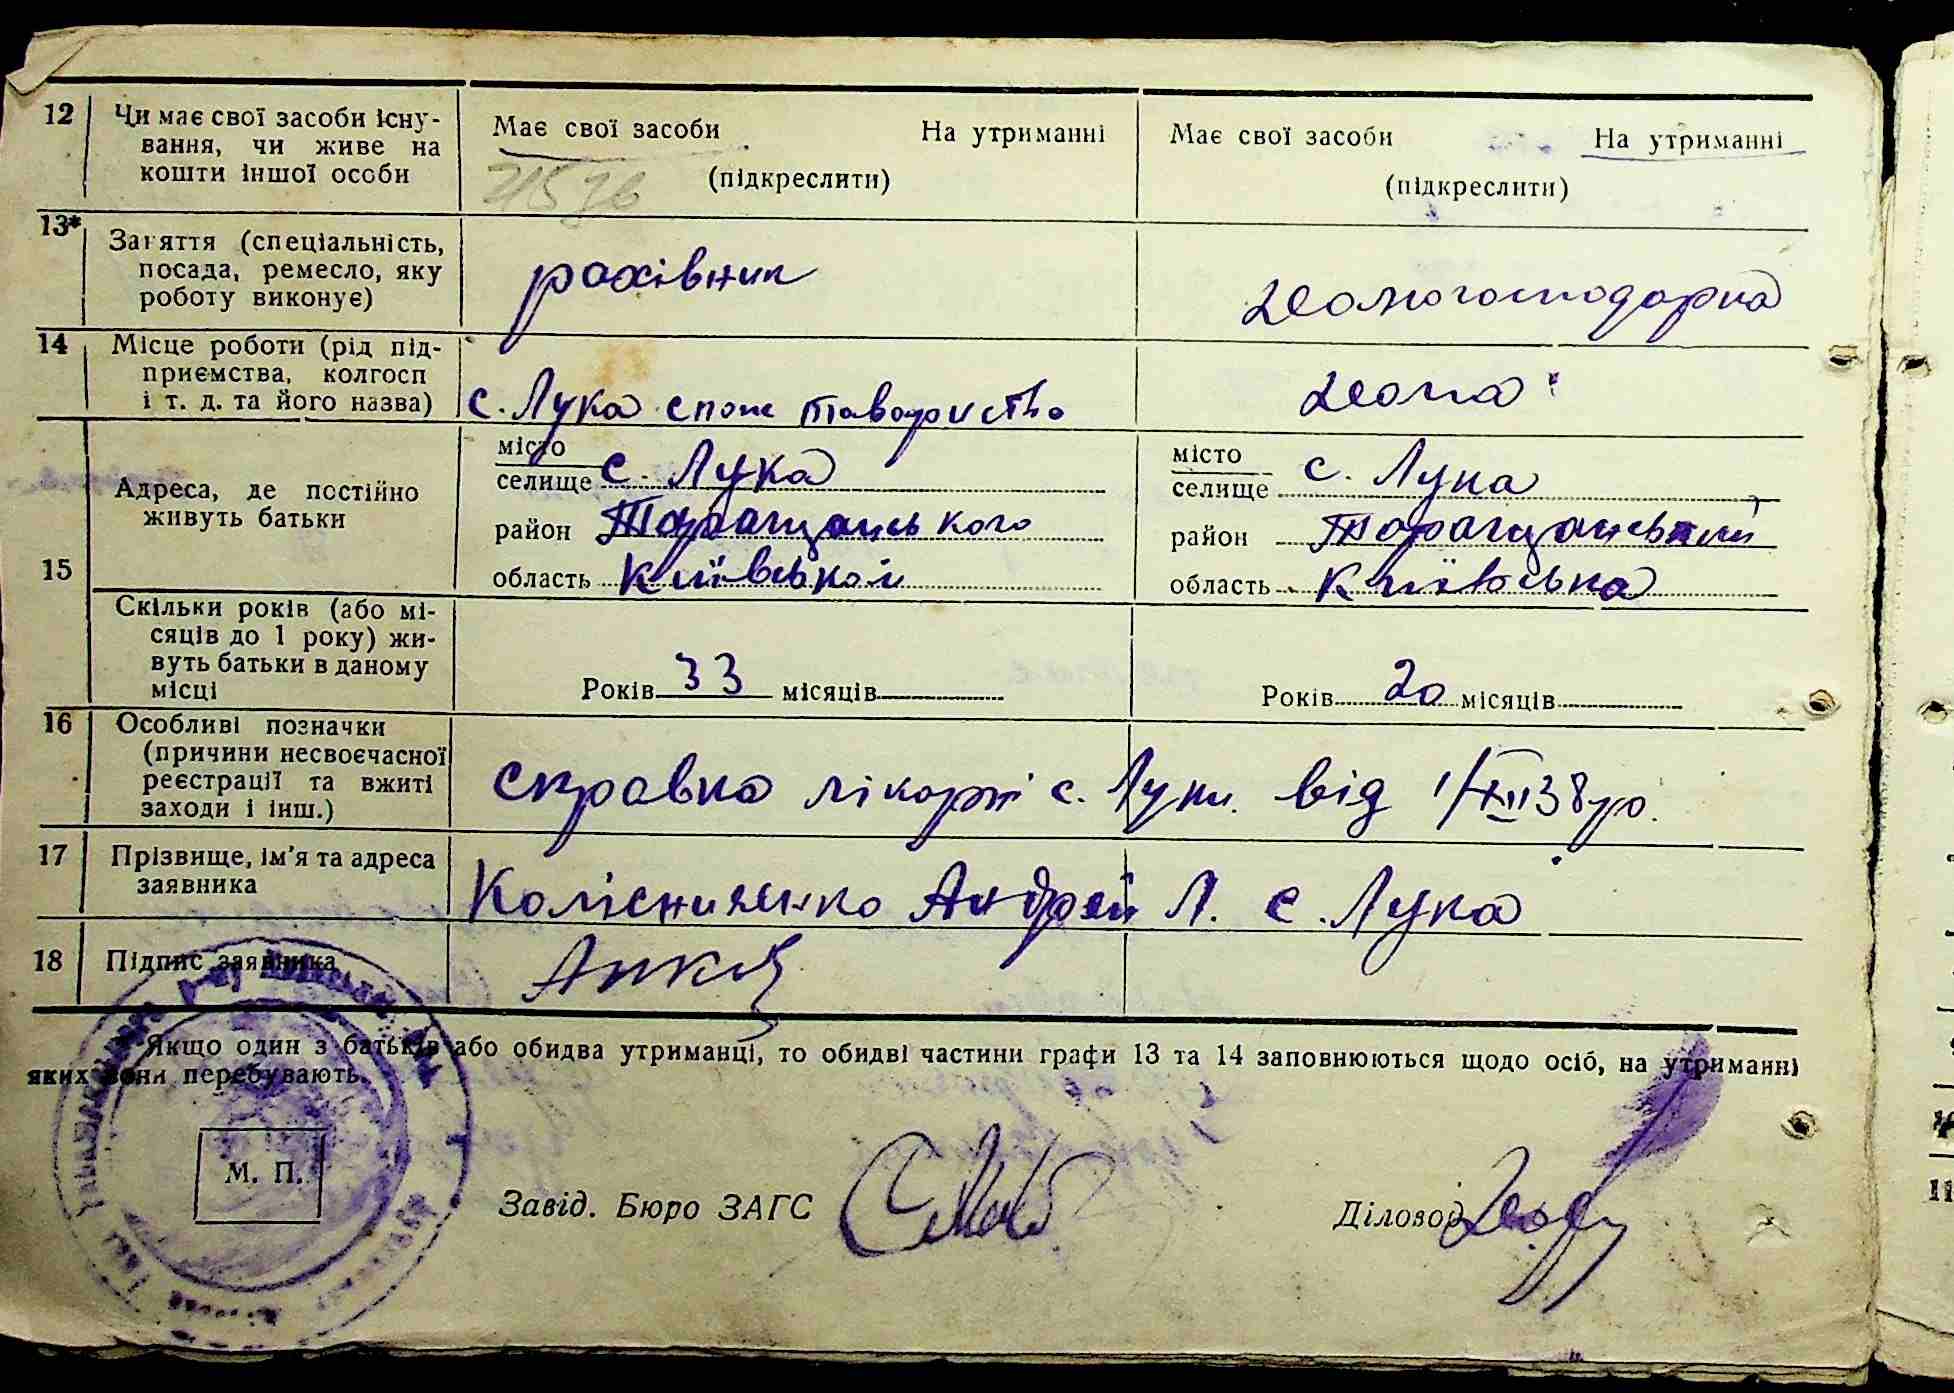 12 Чи має свої засоби існу-
вання, чи живе на
кошти іншої особи
Має свої засоби На утриманні
(підкреслити)
Має свої засоби На утриманні
(підкреслити)
13* Заняття (спеціальність,
посада, ремесло, яку
роботу виконує)
рахівник
домогосподарка
14 Місце роботи (рід під-
приємства, колгосп
і т. д. та його назва)
с. Лука спож товариство
дома
15 Адреса, де постійно
живуть батьки
місто
селище с. Лука
район Таращанського
область Київської
місто
селище с. Лука
район Таращанський
область Київська
Скільки років (або мі-
сяців до 1 року) жи-
вуть батьки в даному
місці
Років 33 місяців
Років 20 місяців
16 Особливі позначки
(причини несвоєчасної
реєстрації та вжиті
заходи і інш.)
справка лікарні с. Луки від 1/XII 38 ро.
17 Прізвище, ім'я та адреса
заявника
Колісниченко Андрей Л. с. Лука
18 Підпис заявника
Якщо один з батьків або обидва утриманці, то обидві частини графи 13 та 14 заповнюються щодо осіб, на утриманні
яких вони перебувають.
М. П.
Завід. Бюро ЗАГС
Діловод